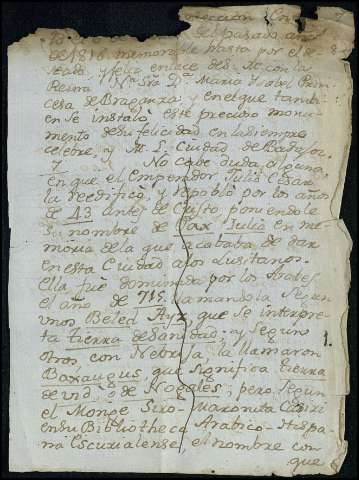 del pasado año
de 1816. memorable hasta por el de-
seado, y feliz enlace de S. M. con la
Reina Nra. Sra. Da. Maria Isabel Prin-
cesa de Braganza y en el que tambi-
en se instaló este precioso monu-
mento de su felicidad en la siempre
celebre, y M. L. Ciudad de Badajoz.
No cabe duda alguna,
en que el Emperador Julio Cesar
la reedificó, y repobló por los años
de 43 antes de Cristo poniendole
su nombre de Pax Julia en me-
moria de la que acababa de dar
en esta Ciudad a los Lusitanos.
Ella fué dominada por los Arabes
el año de 715. llamandola Algu-
unos Beled Ayx que se interpre-
ta tierra de Sanidad, y Segun
otros con Nebrija, la llamaron
Baxaugus que significa tierra
de vid, o de Nogales; pero segun
el Monge Siro-Maronita Casiri
en su Bibliotheca Arabico-Hispa-
na Escurialense, el nombre con
que